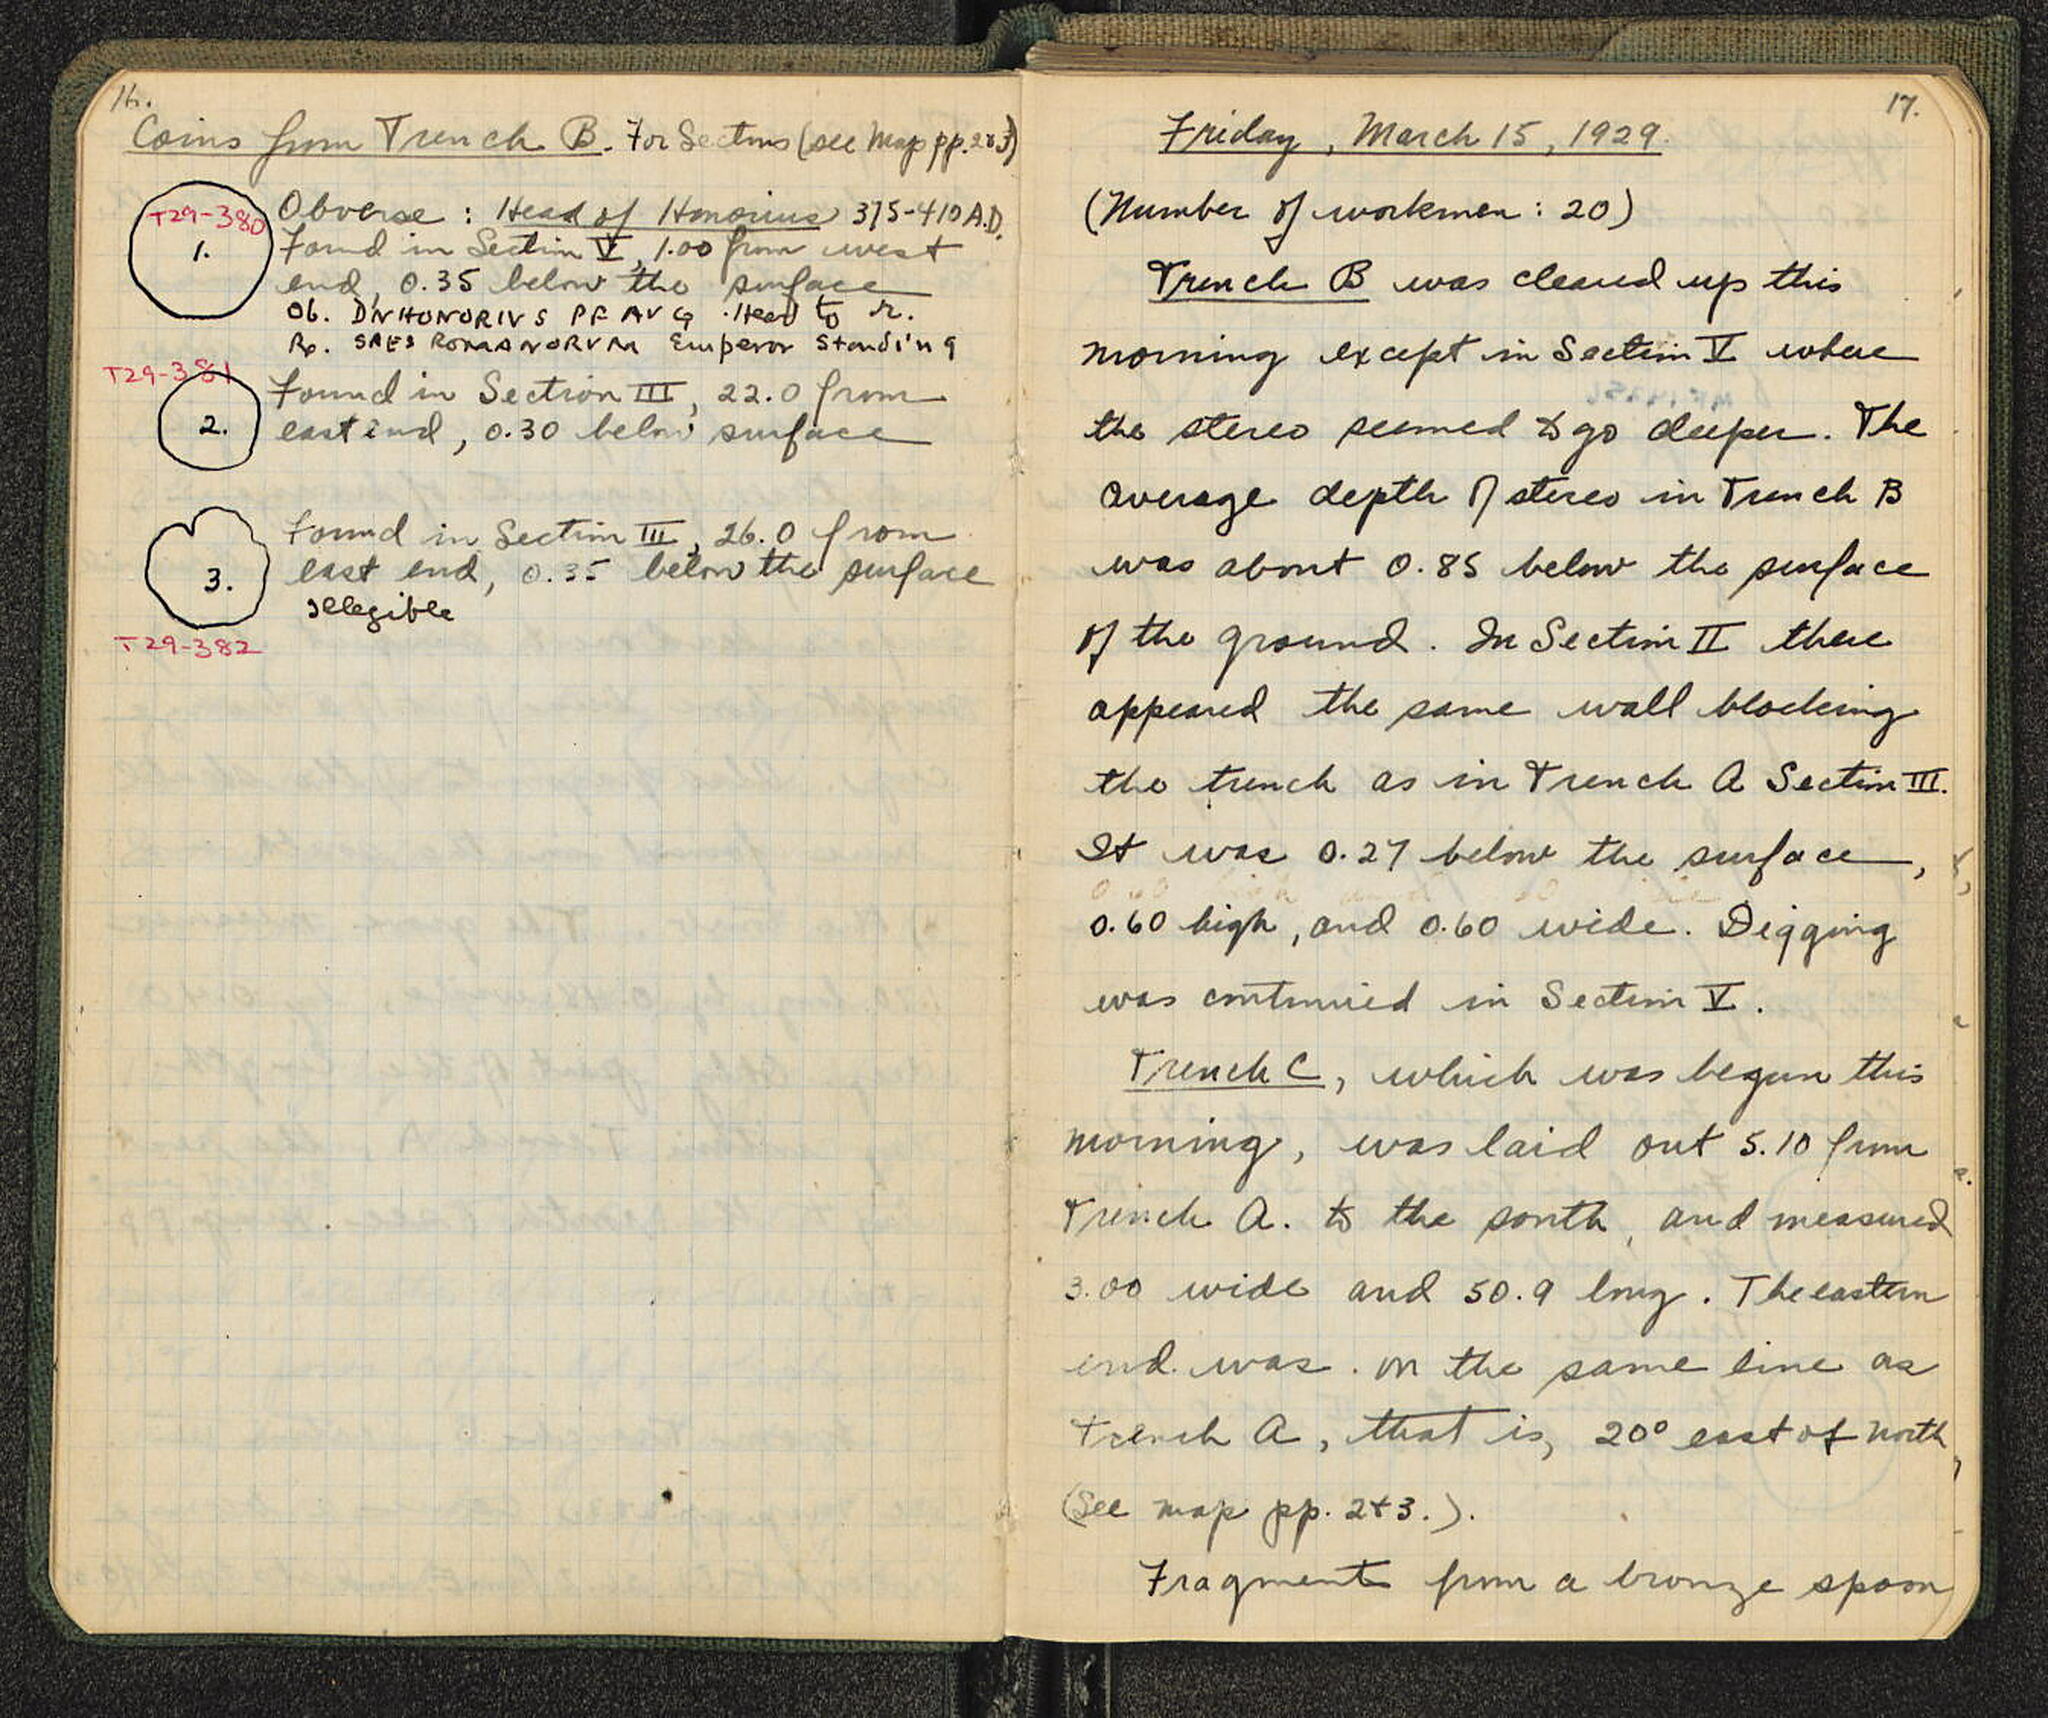 16.
Coins from Trench B. For Sections (see Map pp. 2&3)
T29-380
1.
Obverse : Head of Honorius 375-410 A.D.
Found in Section V, 1.00 from west
end, 0.35 below the surface
Ob. DNHONORIVS PF AVG . Head to r.
Re. SPES ROMANORVM Emperor standing
T29-381
2.
Found in Section III, 22.0 from
east end, 0.30 below surface
3.
Found in Section III, 26.0 from
east end, 0.35 below the surface
illegible
T29-382
17.
Friday, March 15, 1929.
(Number of workmen : 20)
Trench B was cleared up this
morning except in Section V where
the stereo seemed to go deeper. The
average depth of stereo in Trench B
was about 0.85 below the surface
of the ground. In Section II there
appeared the same wall blocking
the trench as in Trench A Section III.
It was 0.27 below the surface,
0.60 high, and 0.60 wide. Digging
was continued in Section V.
Trench C, which was begun this
morning, was laid out 5.10 from
Trench A. to the south, and measured
3.00 wide and 50.9 long. The eastern
end was on the same line as
Trench A, that is, 20° east of North
(See map pp. 2+3.).
Fragment from a bronze spoon